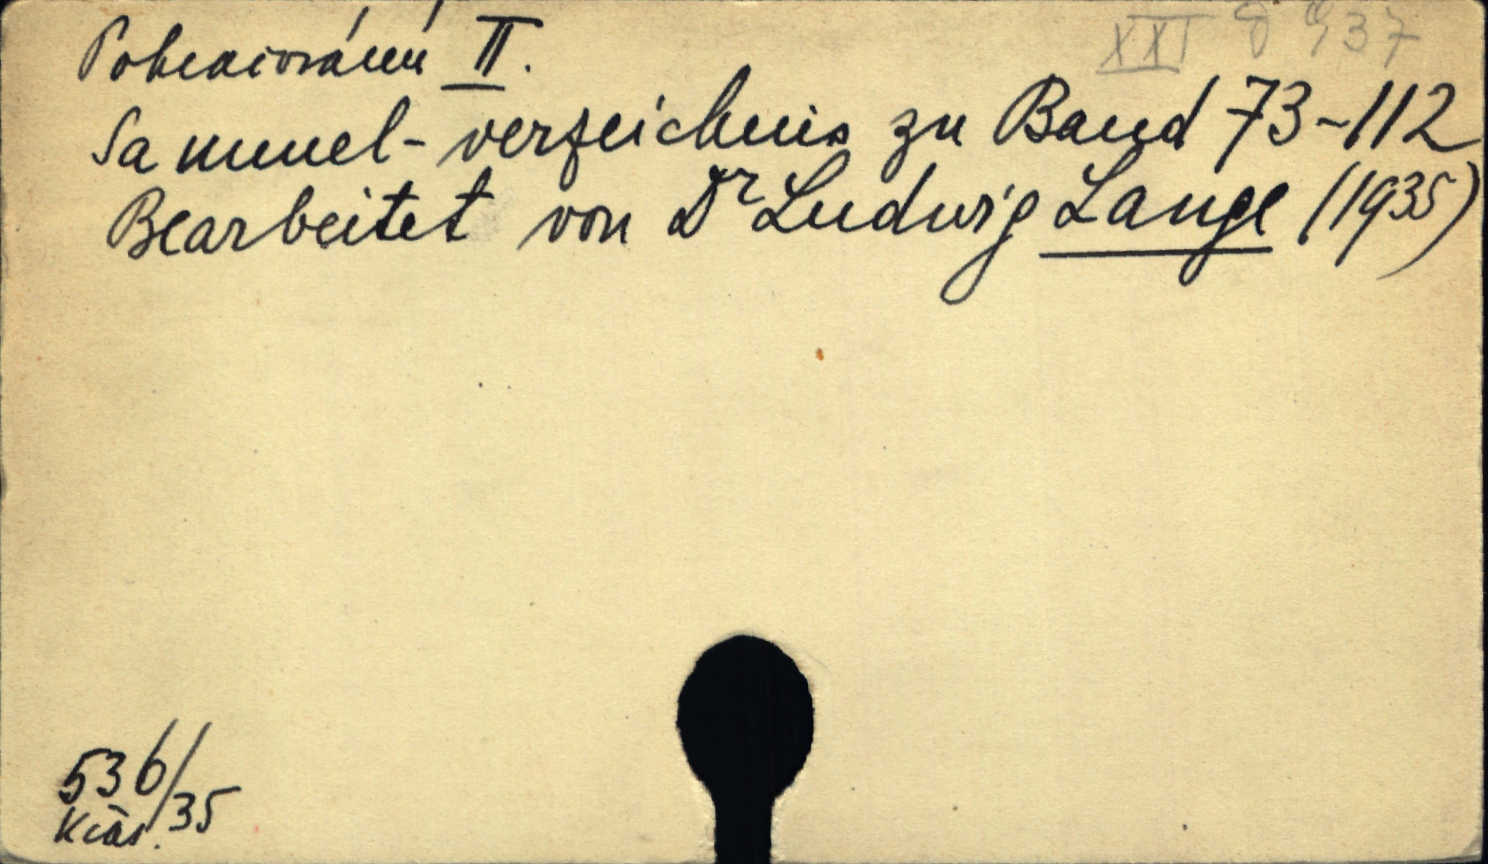 XXI D 937
Pokračování II.
Sammel-verzeichnis zu Band 73-112
Bearbeitet von Dr Ludwig Lange (1935)
536/35